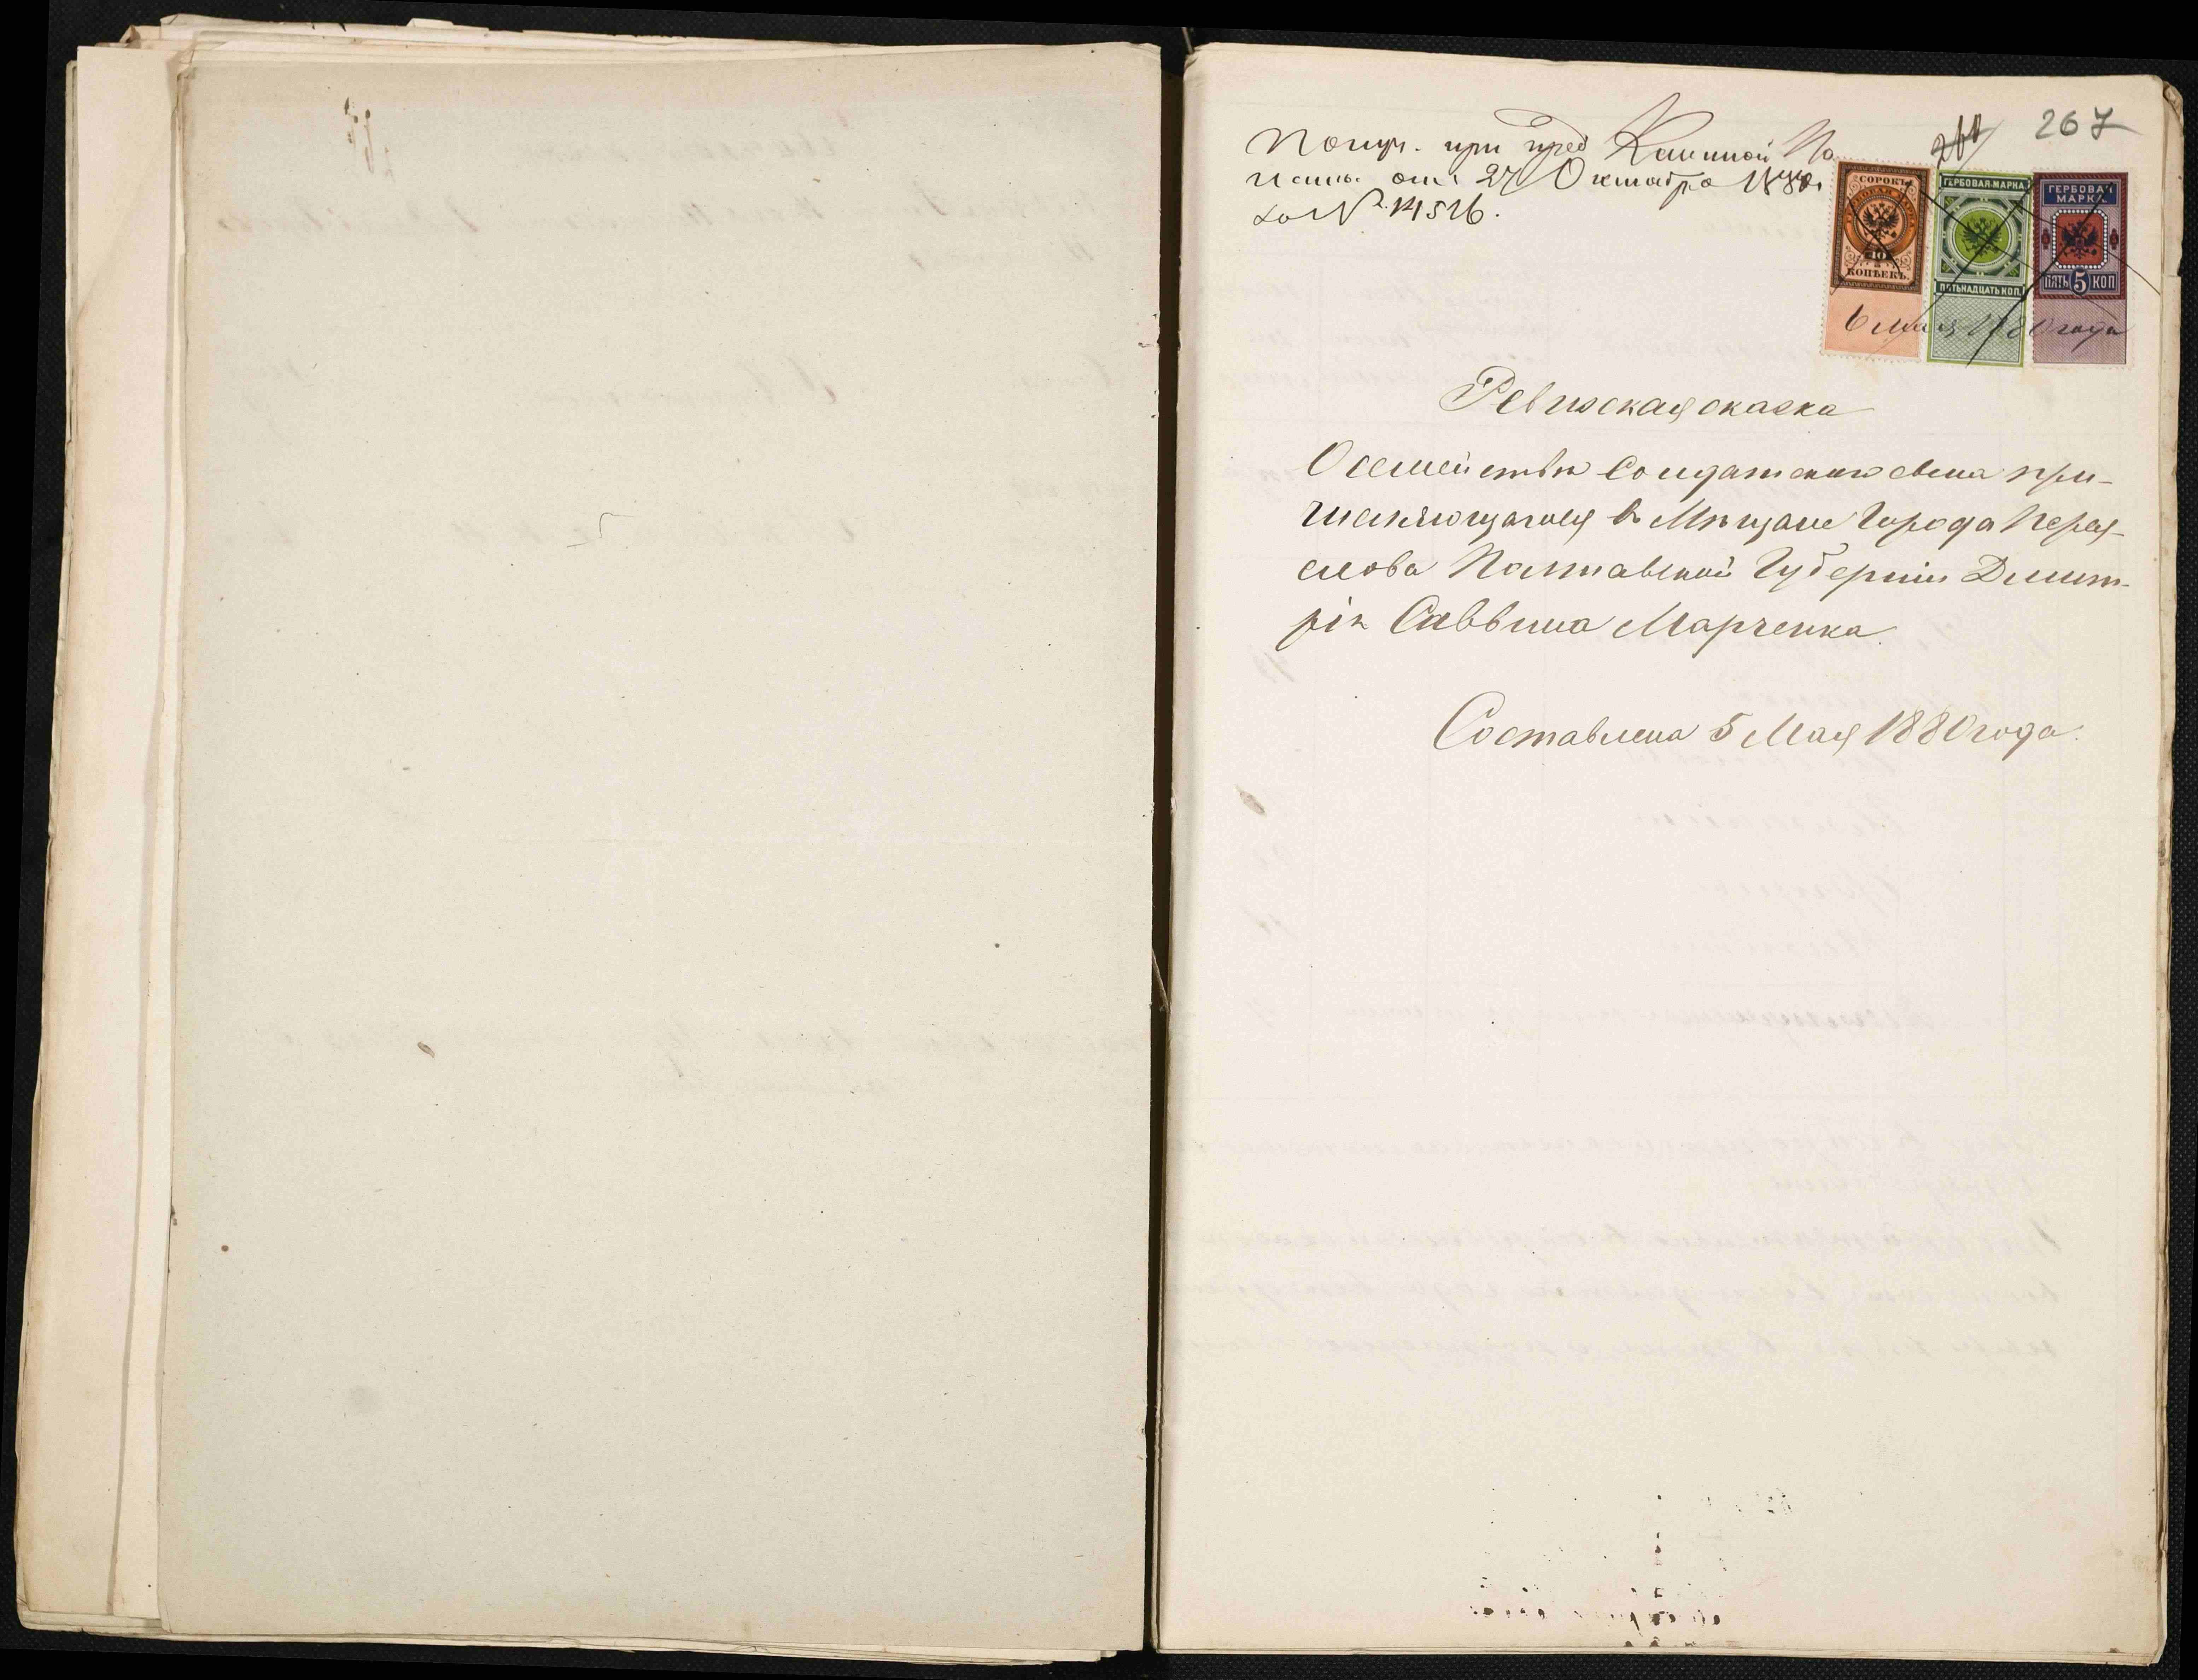 Получ. при пред. Казенной Па
латы от 27 Октября 1880 г.
за № 14526.
267
СОРОКЪ
40
КОПѢЕКЪ.
ГЕРБОВАЯ МАРКА
ПЯТЬНАДЦАТЬ КОП.
ГЕРБОВАЯ
МАРКА
ПЯТЬ 5 КОП
6 мая 1880 года
Ревизская сказка
О семействѣ Солдатскаго сына при-
числяющагося въ Мѣщане Города Перея-
слова Полтавской Губерніи Дмит-
рія Саввина Марченка.
Составлена 5 Мая 1880 года.